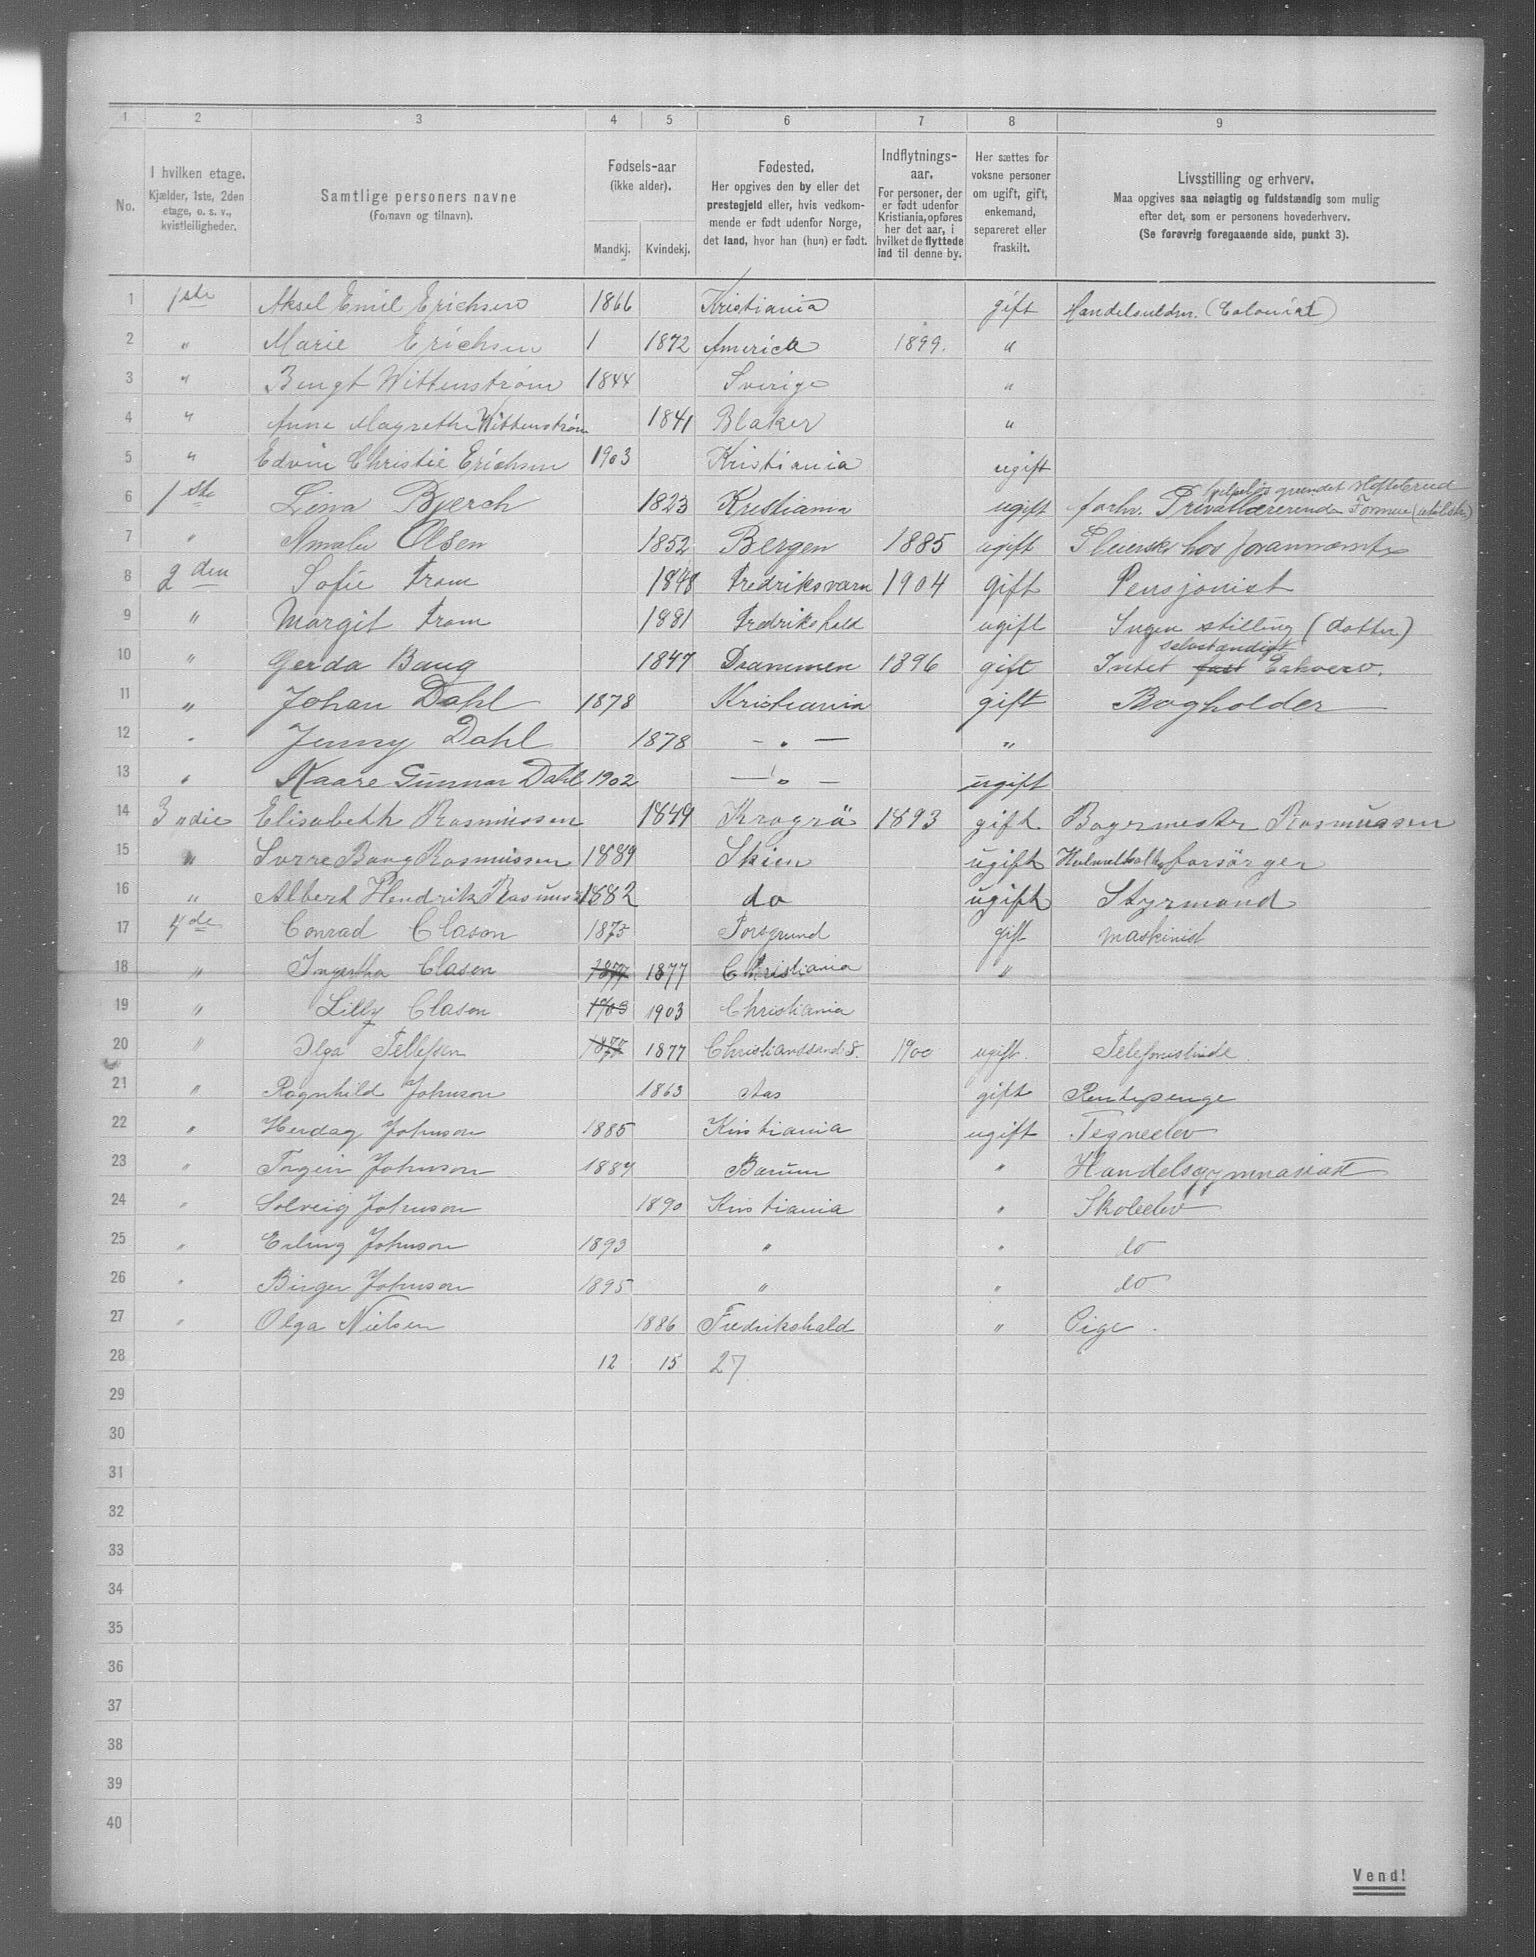 1 2 3 4 5 6 7 8 9
No. I hvilken etage. Kjælder, 1ste, 2den etage, o. s. v., kvistleiligheder.
Samtlige personers navne (Fornavn og tilnavn).
Fødsels-aar (ikke alder). Mandkj. Kvindekj.
Fødested. Her opgives den by eller det prestegjeld eller, hvis vedkommende er født udenfor Norge, det land, hvor han (hun) er født.
Indflytnings-aar. For personer, der er født udenfor Kristiania, opføres her det aar, i hvilket de flyttede ind til denne by.
Her sættes for voksne personer om ugift, gift, enkemand, separeret eller fraskilt.
Livsstilling og erhverv. Maa opgives saa nøiagtig og fuldstændig som mulig efter det, som er personens hovederhverv. (Se forøvrig foregaaende side, punkt 3).
1 1ste Aksel Emil Erichsen 1866 Kristiania gift (Colonial)
2 " Marie Erichsen 1 1872 America 1899. "
3 " Bengt Wittenstrøm 1844 Sverige "
4 " Anne Magrethe Wittenstrøm 1841 Blaker "
5 " Edvin Christie Erichsen 1903 Kristiania ugift
6 1ste Lina Bjerch 1823 Kristiania ugift forh. Privatlærerinde Formue
7 " Amalie Olsen 1852 Bergen 1885 ugift Pleierske hos forannævnte
8 2den Sofie Fram 1848 Fredriksværn 1904 gift Pensjonist
9 " Margit Fram 1881 Fredrikshald ugift Ingen stilling (datter)
10 " Gerda Baug 1847 Drammen 1896 gift Intet fast selvstændigt Erhverv.
11 " Johan Dahl 1878 Kristiania gift Bogholder
12 " Jenny Dahl 1878 — " — "
13 " Kaare Gunnar Dahl 1902 — " — ugift
14 3die Elisabeth Rasmussen 1849 Kragrø 1893 gift Rasmussen
15 " Baug Rasmussen 1889 Skien ugift forsörger
16 " Albert Hendrik 1882 do ugift Styrmand
17 4de Conrad Clason 1875 Porsgrund gift maskinist
18 " Clasen 1877 1877 Christiania "
19 " Lilly Clason 1903 1903 Christiania
20 " Olga Tellefsen 1877 1877 Christianssand S. 1900 ugift. Telefonistinde.
21 " Ragnhild Johnson 1863 Aas gift Rentepenge
22 " Johnson 1885 Kristiania ugift Tegneelev
23 " Johnson 1887 Bærum " Handelsgymnasiast
24 " Solveig Johnson 1890 Kristiania " Skoleelev
25 " Erling Johnson 1893 " " do
26 " Birger Johnson 1895 " " do
27 " Olga Nielsen 1886 Fredrikshald " Pige.
28 12 15 27
29
30
31
32
33
34
35
36
37
38
39
40
Vend!